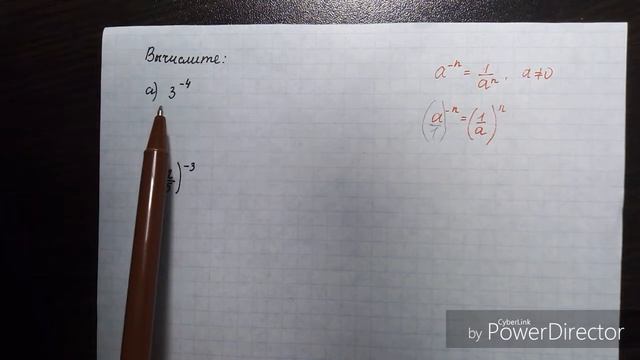 Вычислите:
а) 3⁻⁴
)⁻³
a⁻ⁿ = 1/aⁿ, a ≠ 0
(a/1)⁻ⁿ = (1/a)ⁿ
by CyberLink PowerDirector